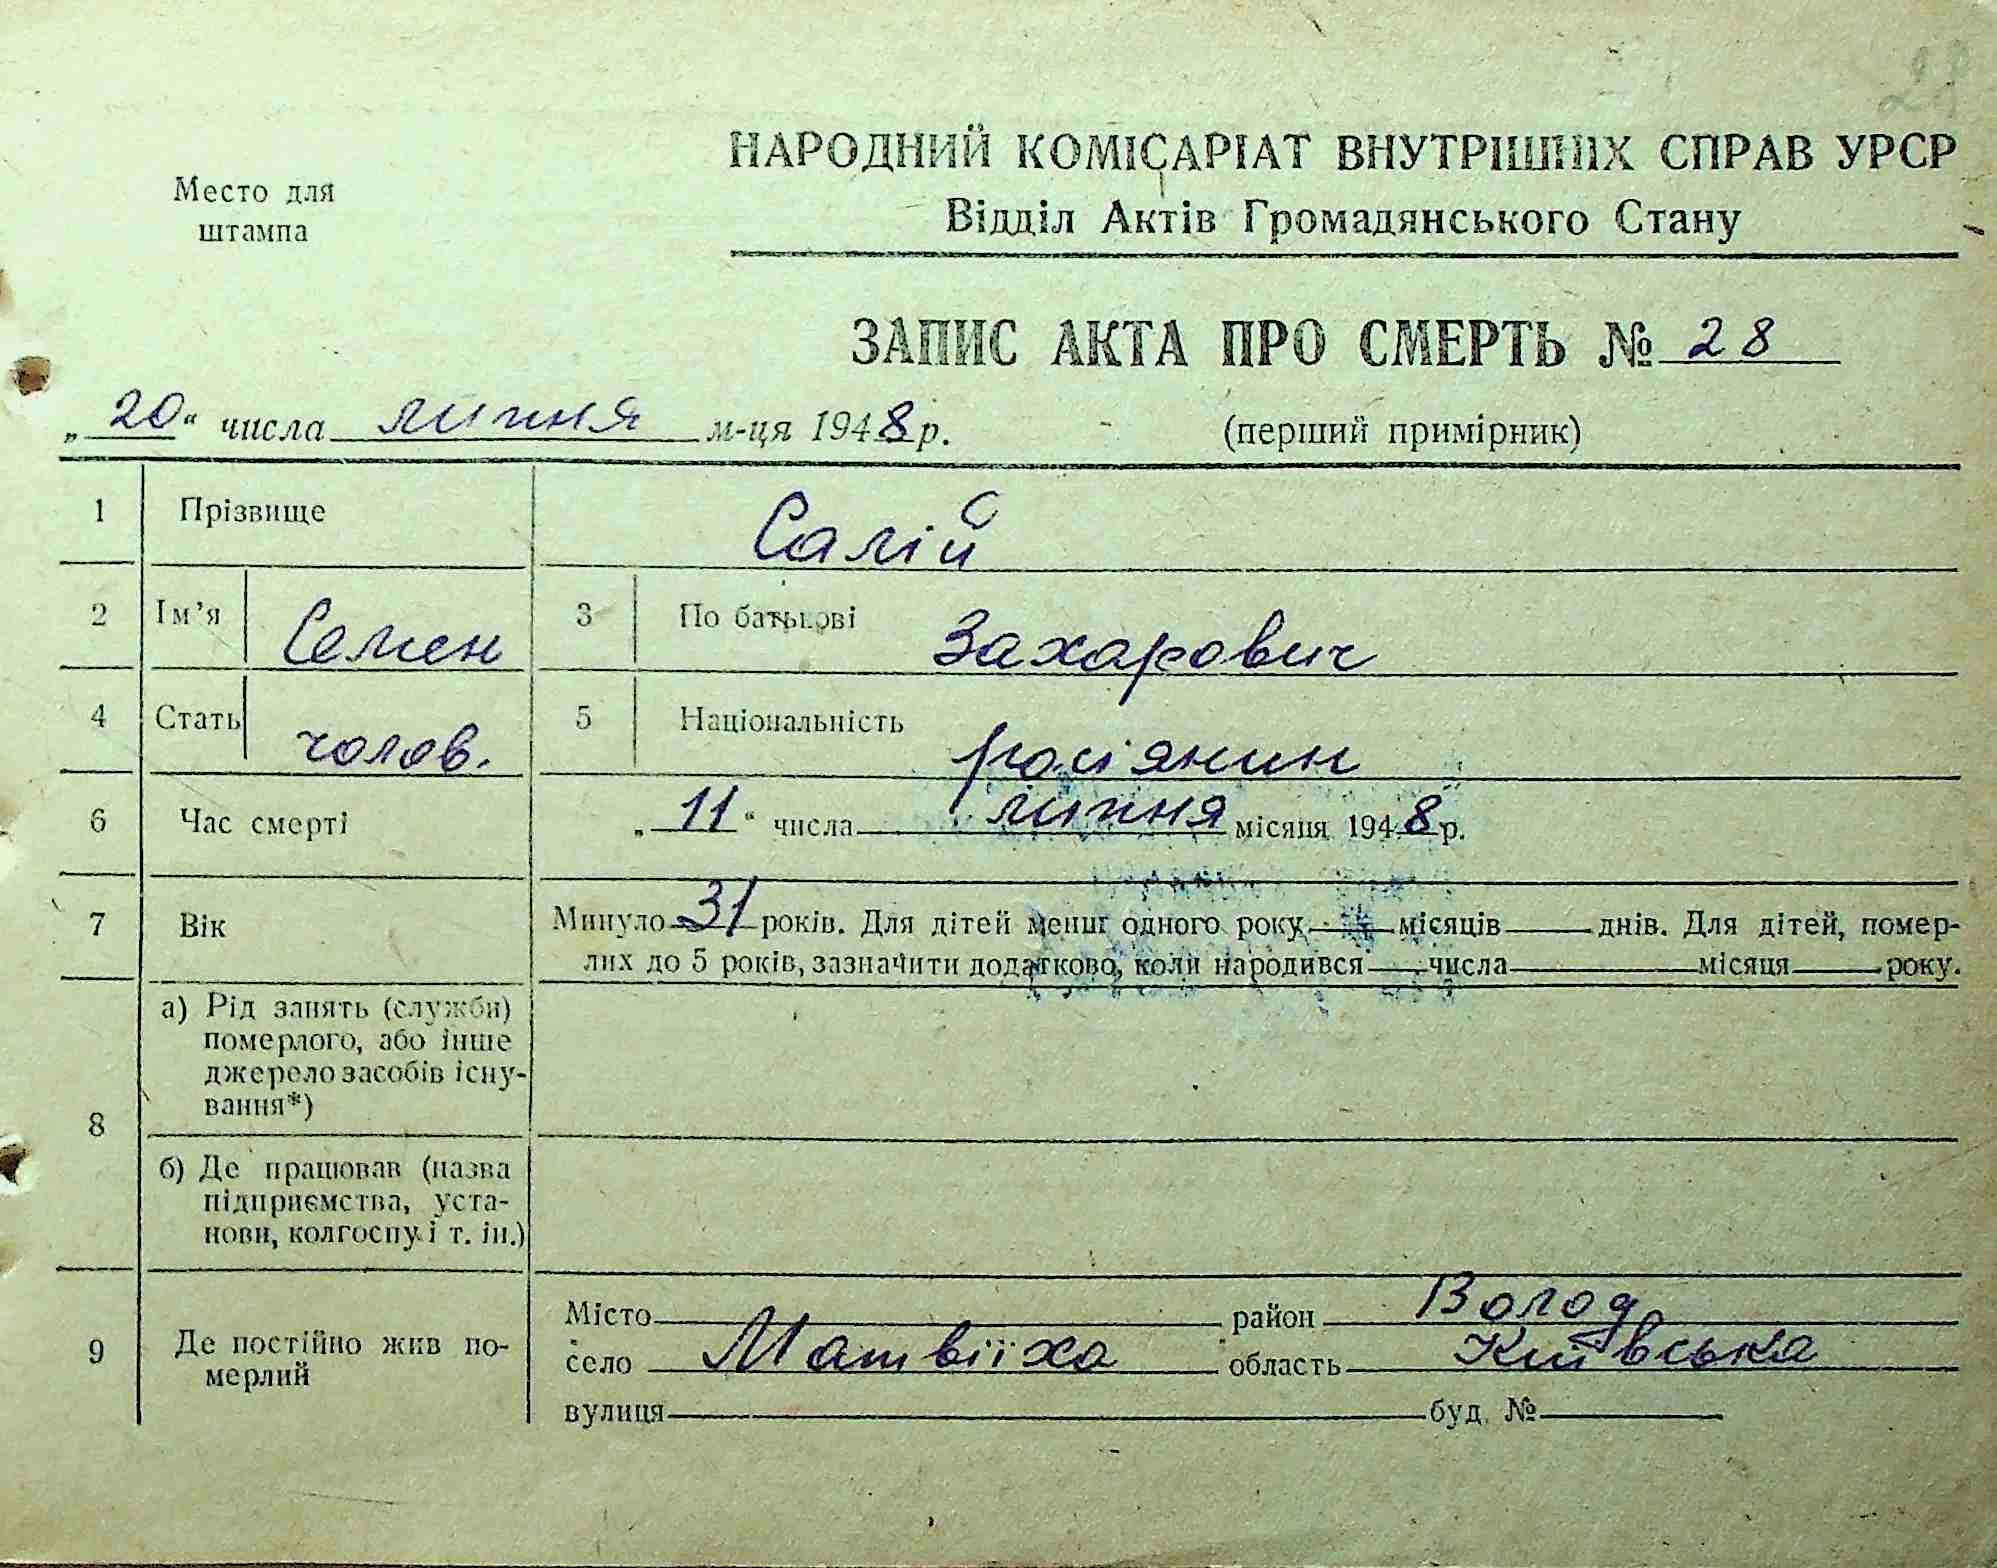 28
НАРОДНИЙ КОМІСАРІАТ ВНУТРІШНІХ СПРАВ УРСР
Место для
штампа
Відділ Актів Громадянського Стану
ЗАПИС АКТА ПРО СМЕРТЬ № 28
„20“ числа липня м-ця 1948 р.
(перший примірник)
1 Прізвище Салій
2 Ім’я Семен 3 По батькові Захарович
4 Стать чолов. 5 Національність росіянин
6 Час смерті „11“ числа липня місяця 1948 р.
7 Вік Минуло 31 років. Для дітей менш одного року місяців днів. Для дітей, помер-
лих до 5 років, зазначити додатково, коли народився числа місяця року.
8 а) Рід занять (служби)
померлого, або інше
джерело засобів існу-
вання*)
б) Де працював (назва
підприємства, уста-
нови, колгоспу і т. ін.)
9 Де постійно жив по-
мерлий
Місто район Волод
село Матвіїха область Київська
вулиця буд. №